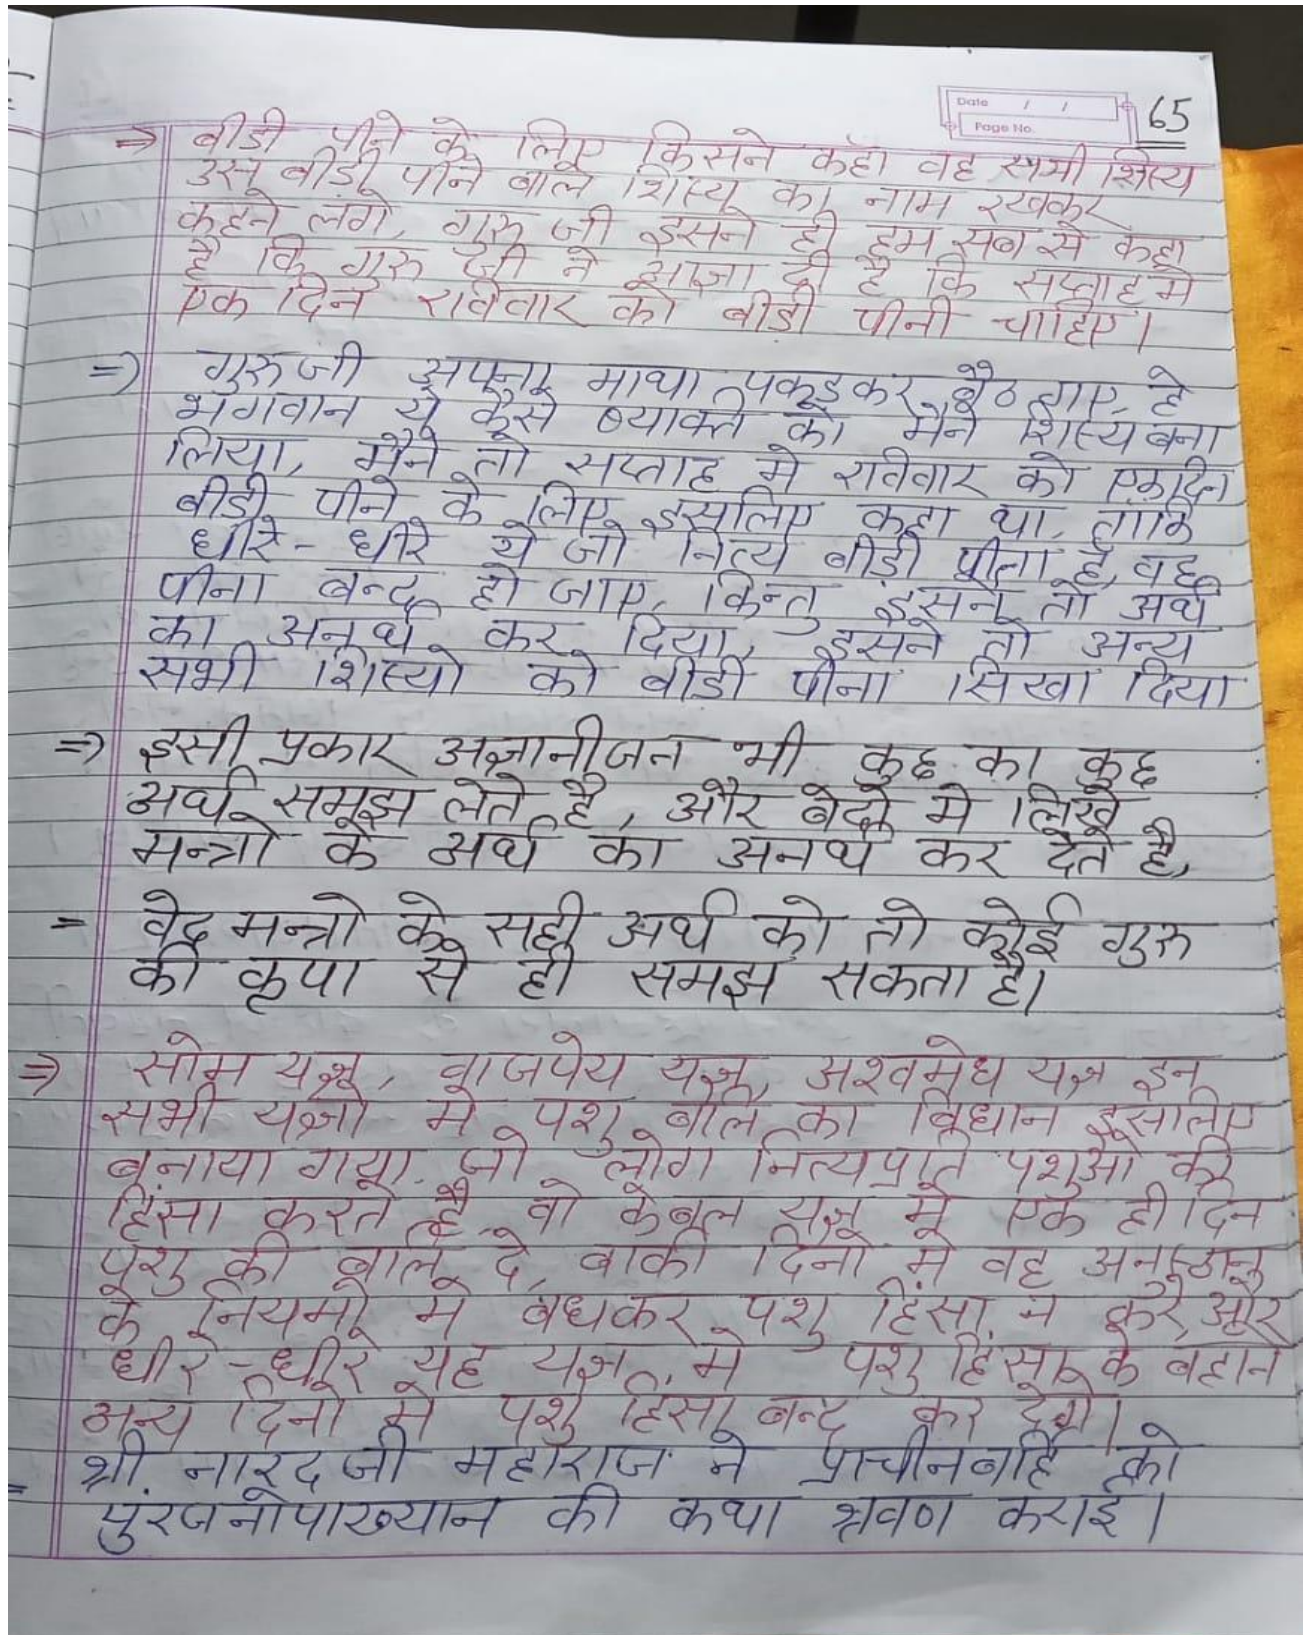 Date / /
Page No.
65
⇒ बीडी पीने के लिए किसने कहाँ वह सभी शिष्य
उस बीडी पीने बाले शिष्य का नाम रखकर
कहने लगे, गुरु जी इसने ही हम सब से कहा
है कि गुरु जी ने आज्ञा दी है कि सप्ताह मे
एक दिन रविवार को बीडी पीनी चाहिए।
⇒ गुरुजी अपना माथा पकड़कर बैठ गए, हे
भगवान ये कैसे व्यक्ति को मैने शिष्य बना
लिया, मैने तो सप्ताह मे रविवार को एकदिन
बीडी पीने के लिए इसलिए कहा था, ताकि
धीरे - धीरे ये जो नित्य बीड़ी पीता है, वह
पीना बन्द हो जाए, किन्तु इसने तो अर्थ
का अनर्थ कर दिया, इसने तो अन्य
सभी शिष्यो को बीडी पीना सिखा दिया
⇒ इसी प्रकार अज्ञानीजन भी कुछ का कुछ
अर्थ समझ लेते है, और बेदो मे लिखे
मन्त्रो के अर्थ का अनर्थ कर देते है,
= वेद मन्त्रो के सही अर्थ को तो कोई गुरु
की कृपा से ही समझ सकता है।
⇒ सोम यज्ञ, वाजपेय यज्ञ, अश्वमेध यज्ञ इन
सभी यज्ञो मे पशु बलि का विधान इसलिए
बनाया गया, जो लोग नित्यप्रति पशुओ की
हिंसा करते है, वो केबल यज्ञ मे एक ही दिन
पशु की बलि दे, बाकी दिनो मे वह अनुष्ठान
के नियमो मे बधकर पशु हिंसा न करे, और
धीरे - धीरे यह यज्ञ मे पशु हिंसा के बहाने
अन्य दिनो मे पशु हिंसा बन्द कर देगे।
= श्री नारद जी महाराज ने प्राचीनबर्हि को
पुंरजनोपाख्यान की कथा श्रवण कराई।